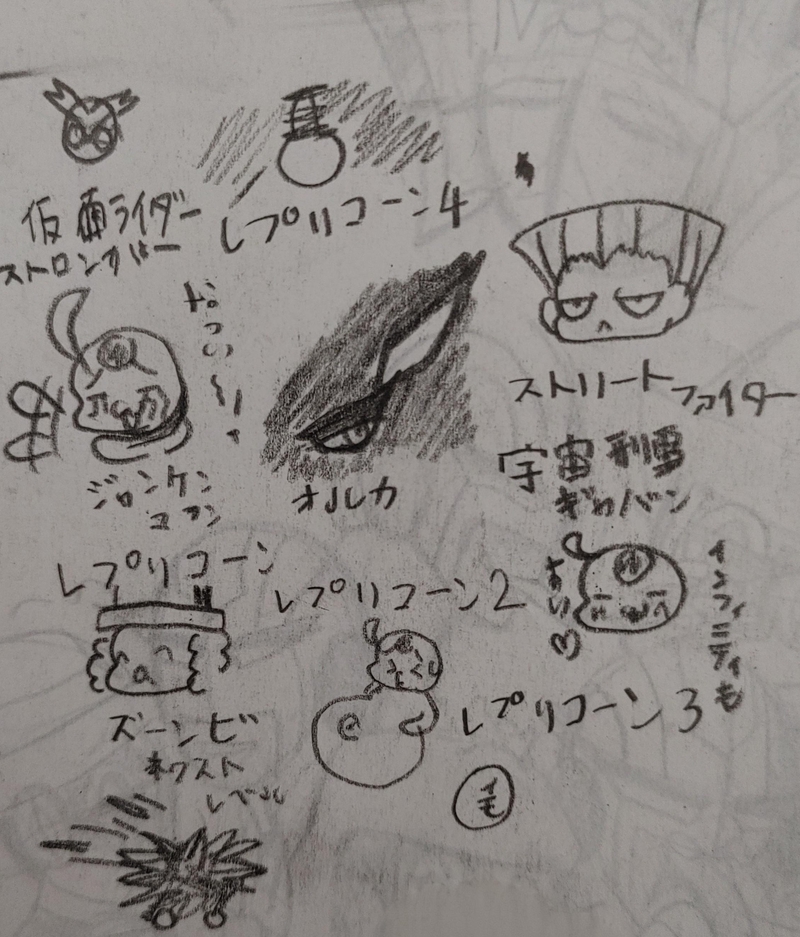 仮面ライダー
ストロンガー
レプリコーン4
ストリートファイター
オルカ
宇宙刑事
ギャバン
レプリコーン
レプリコーン2
インフィニティも
レプリコーン3
ズーンビ
ネクスト
レベル